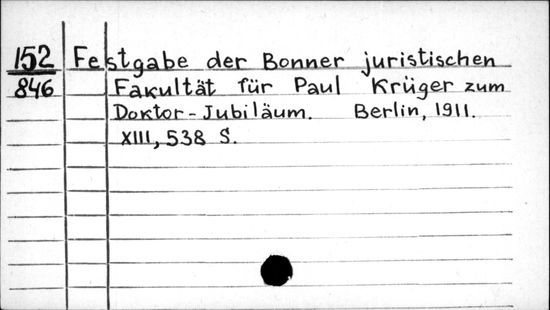 152 Festgabe der Bonner juristischen
846 Fakultät für Paul Krüger zum
Doktor-Jubiläum. Berlin, 1911.
XIII, 538 S.